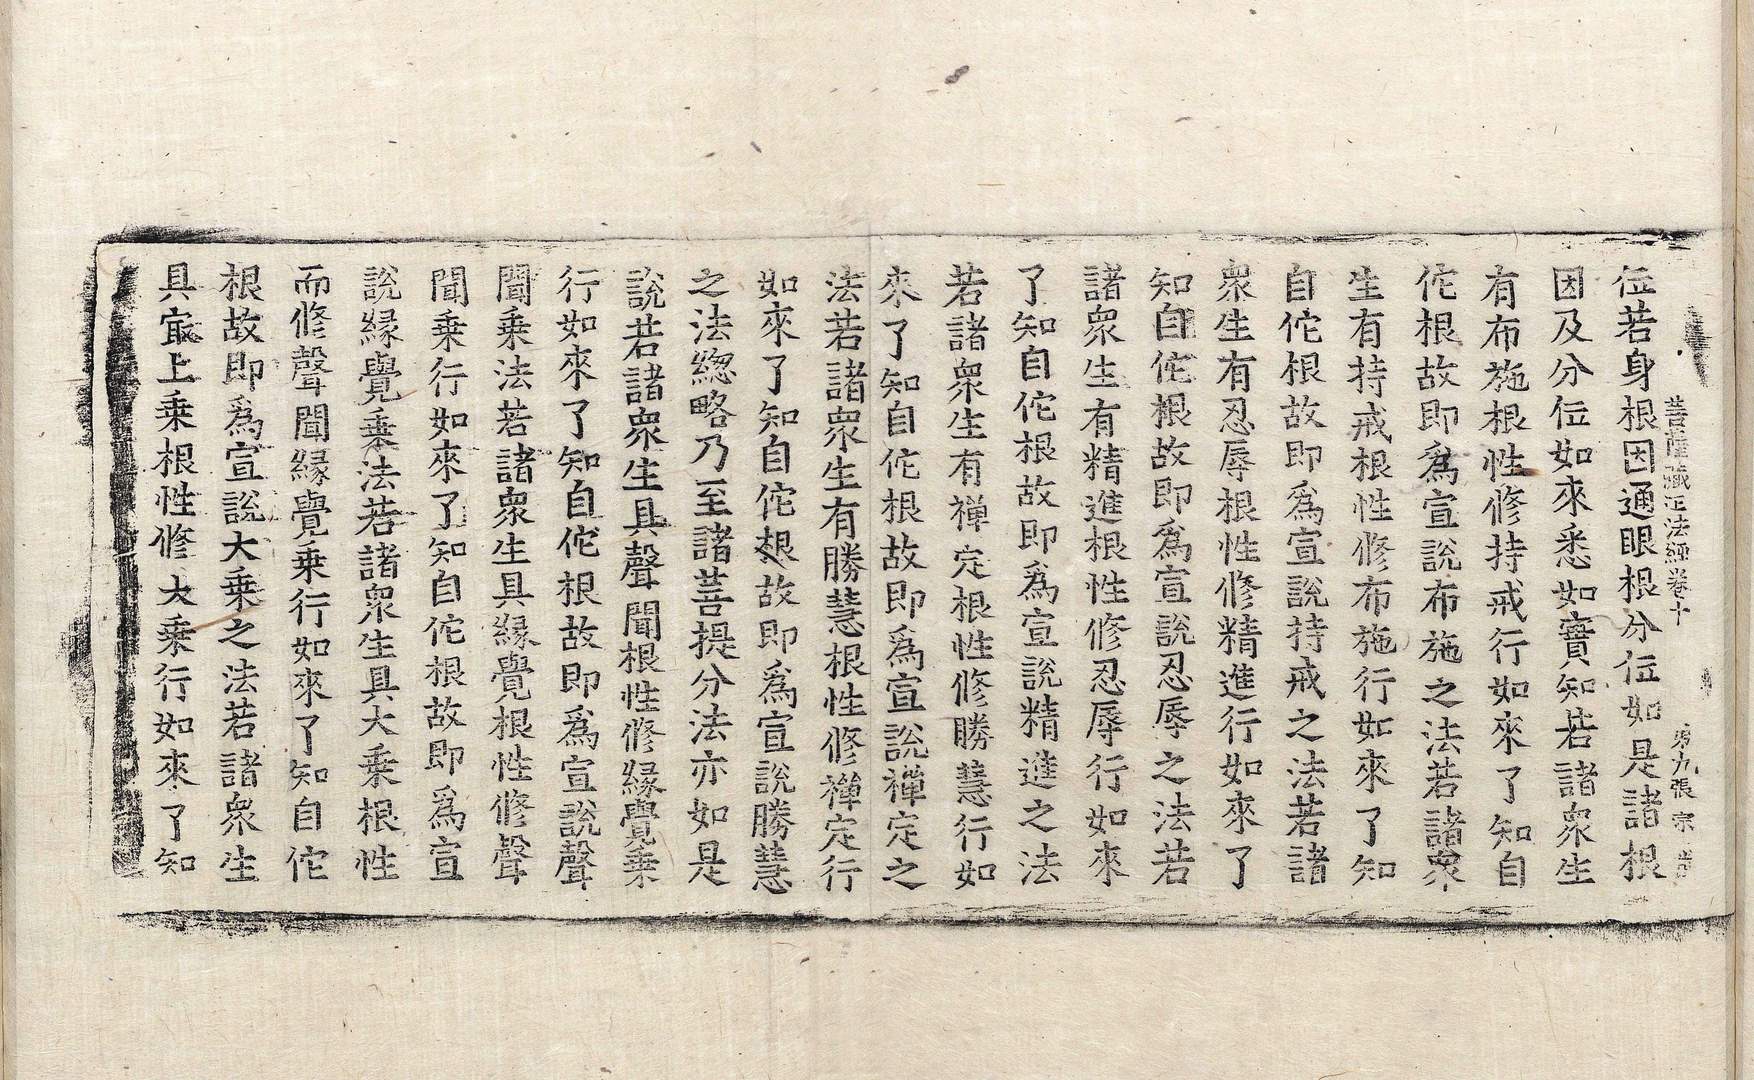 菩薩藏正法經卷十 第九張 宗
位若身根因通眼根分位如是諸根
因及分位如來悉如實知若諸衆生
有布施根性修持戒行如來了知自
佗根故即爲宣說布施之法若諸衆
生有持戒根性修布施行如來了知
自佗根故即爲宣說持戒之法若諸
衆生有忍辱根性修精進行如來了
知自佗根故即爲宣說忍辱之法若
諸衆生有精進根性修忍辱行如來
了知自佗根故即爲宣說精進之法
若諸衆生有禪定根性修勝慧行如
來了知自佗根故即爲宣說禪定之
法若諸衆生有勝慧根性修禪定行
如來了知自佗根故即爲宣說勝慧
之法緫略乃至諸菩提分法亦如是
說若諸衆生具聲聞根性修緣覺乗
行如來了知自佗根故即爲宣說聲
聞乗法若諸衆生具緣覺根性修聲
聞乗行如來了知自佗根故即爲宣
說緣覺乗法若諸衆生具大乗根性
而修聲聞緣覺乗行如來了知自佗
根故即爲宣說大乗之法若諸衆生
具㝡上乗根性修大乗行如來了知